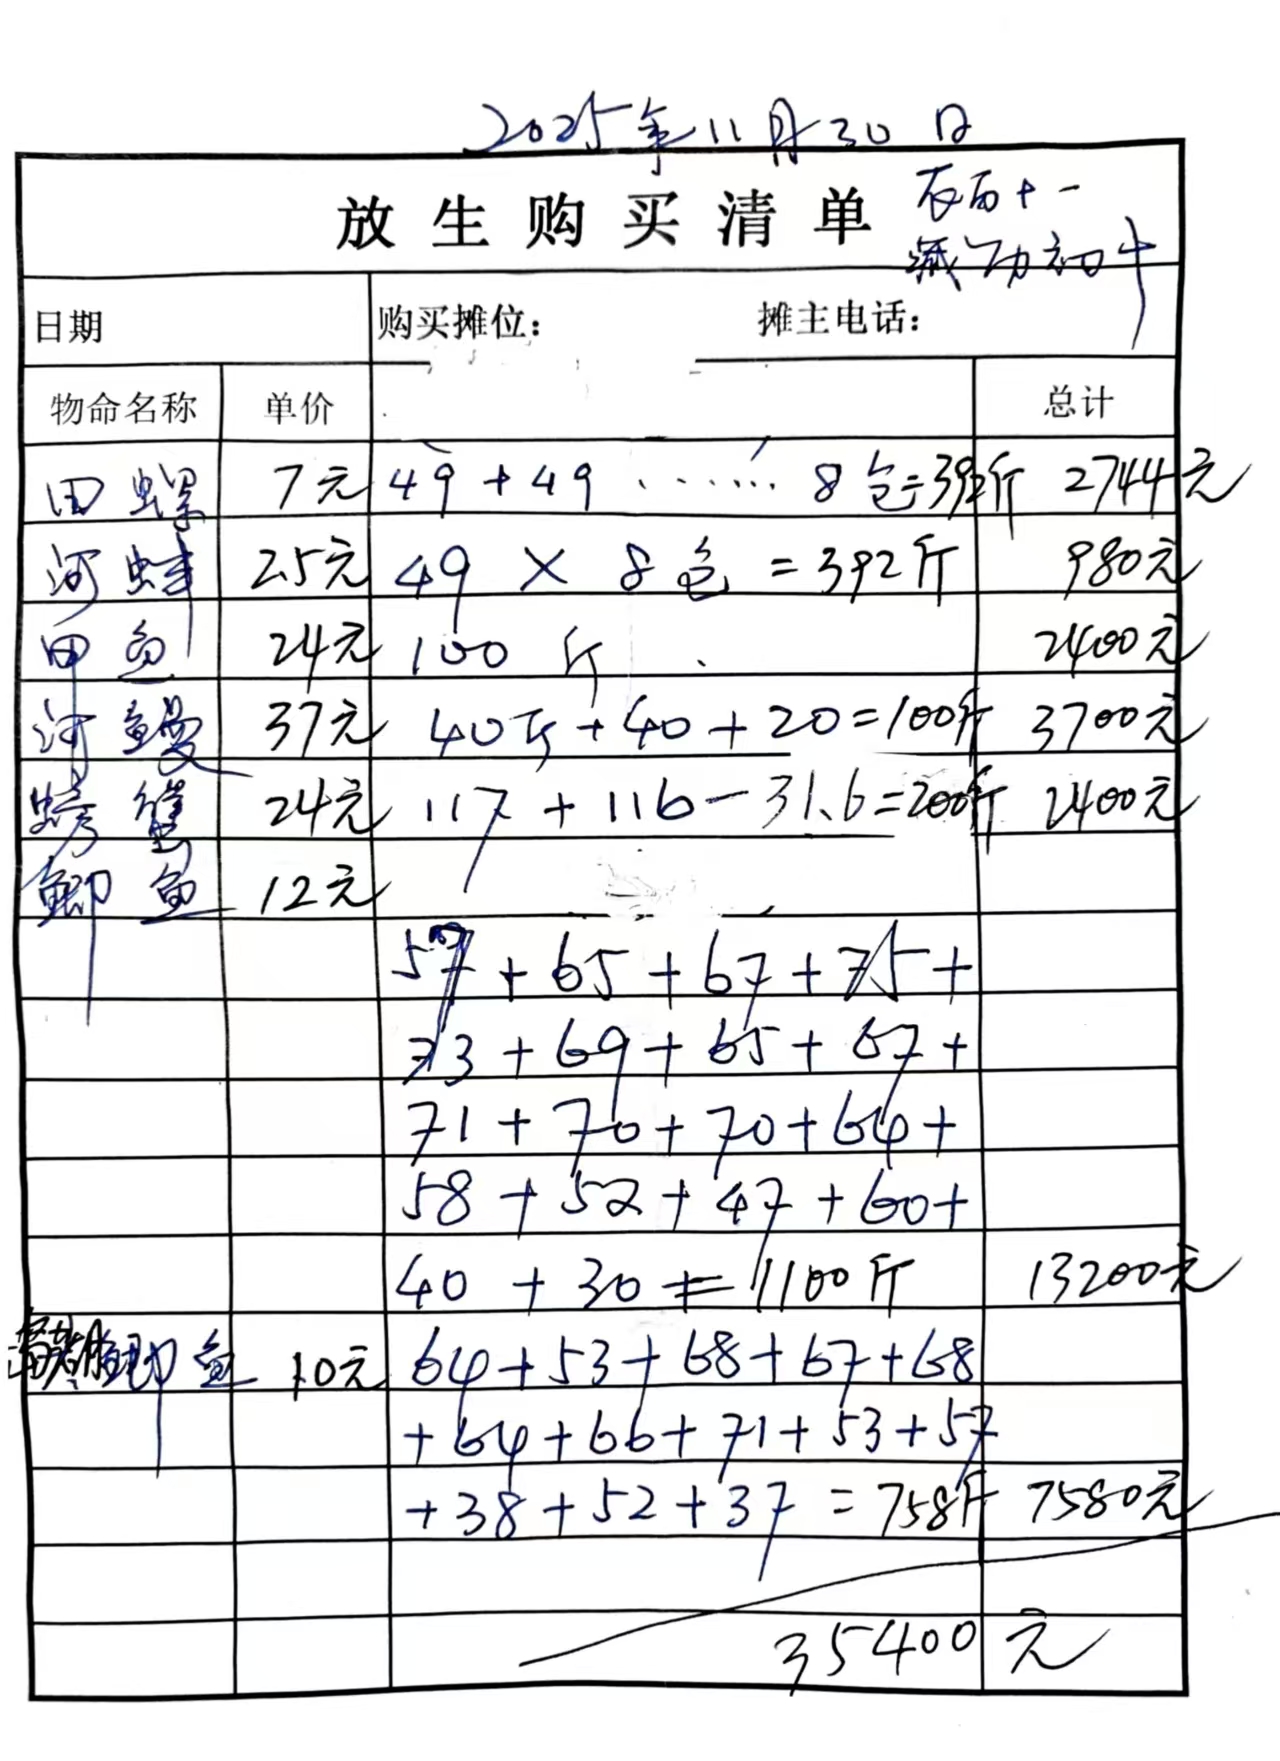 2025年11月30日
放生购买清单 农历十一
减 功 初十
日期 购买摊位： 摊主电话：
物命名称 单价 总计
田螺 7元 49+49……8包=392斤 2744元
河蚌 2.5元 49×8包=392斤 980元
甲鱼 24元 100斤 2400元
河鳗 37元 40斤+40+20=100斤 3700元
螃蟹 24元 117+116-31.6=200斤 2400元
鲫鱼 12元
57+65+67+75+
73+69+65+67+
71+70+70+64+
58+52+47+60+
40+30=1100斤 13200元
鲫鱼 10元 64+53+68+67+68
+64+66+71+53+57
+38+52+37=758斤 7580元
35400元